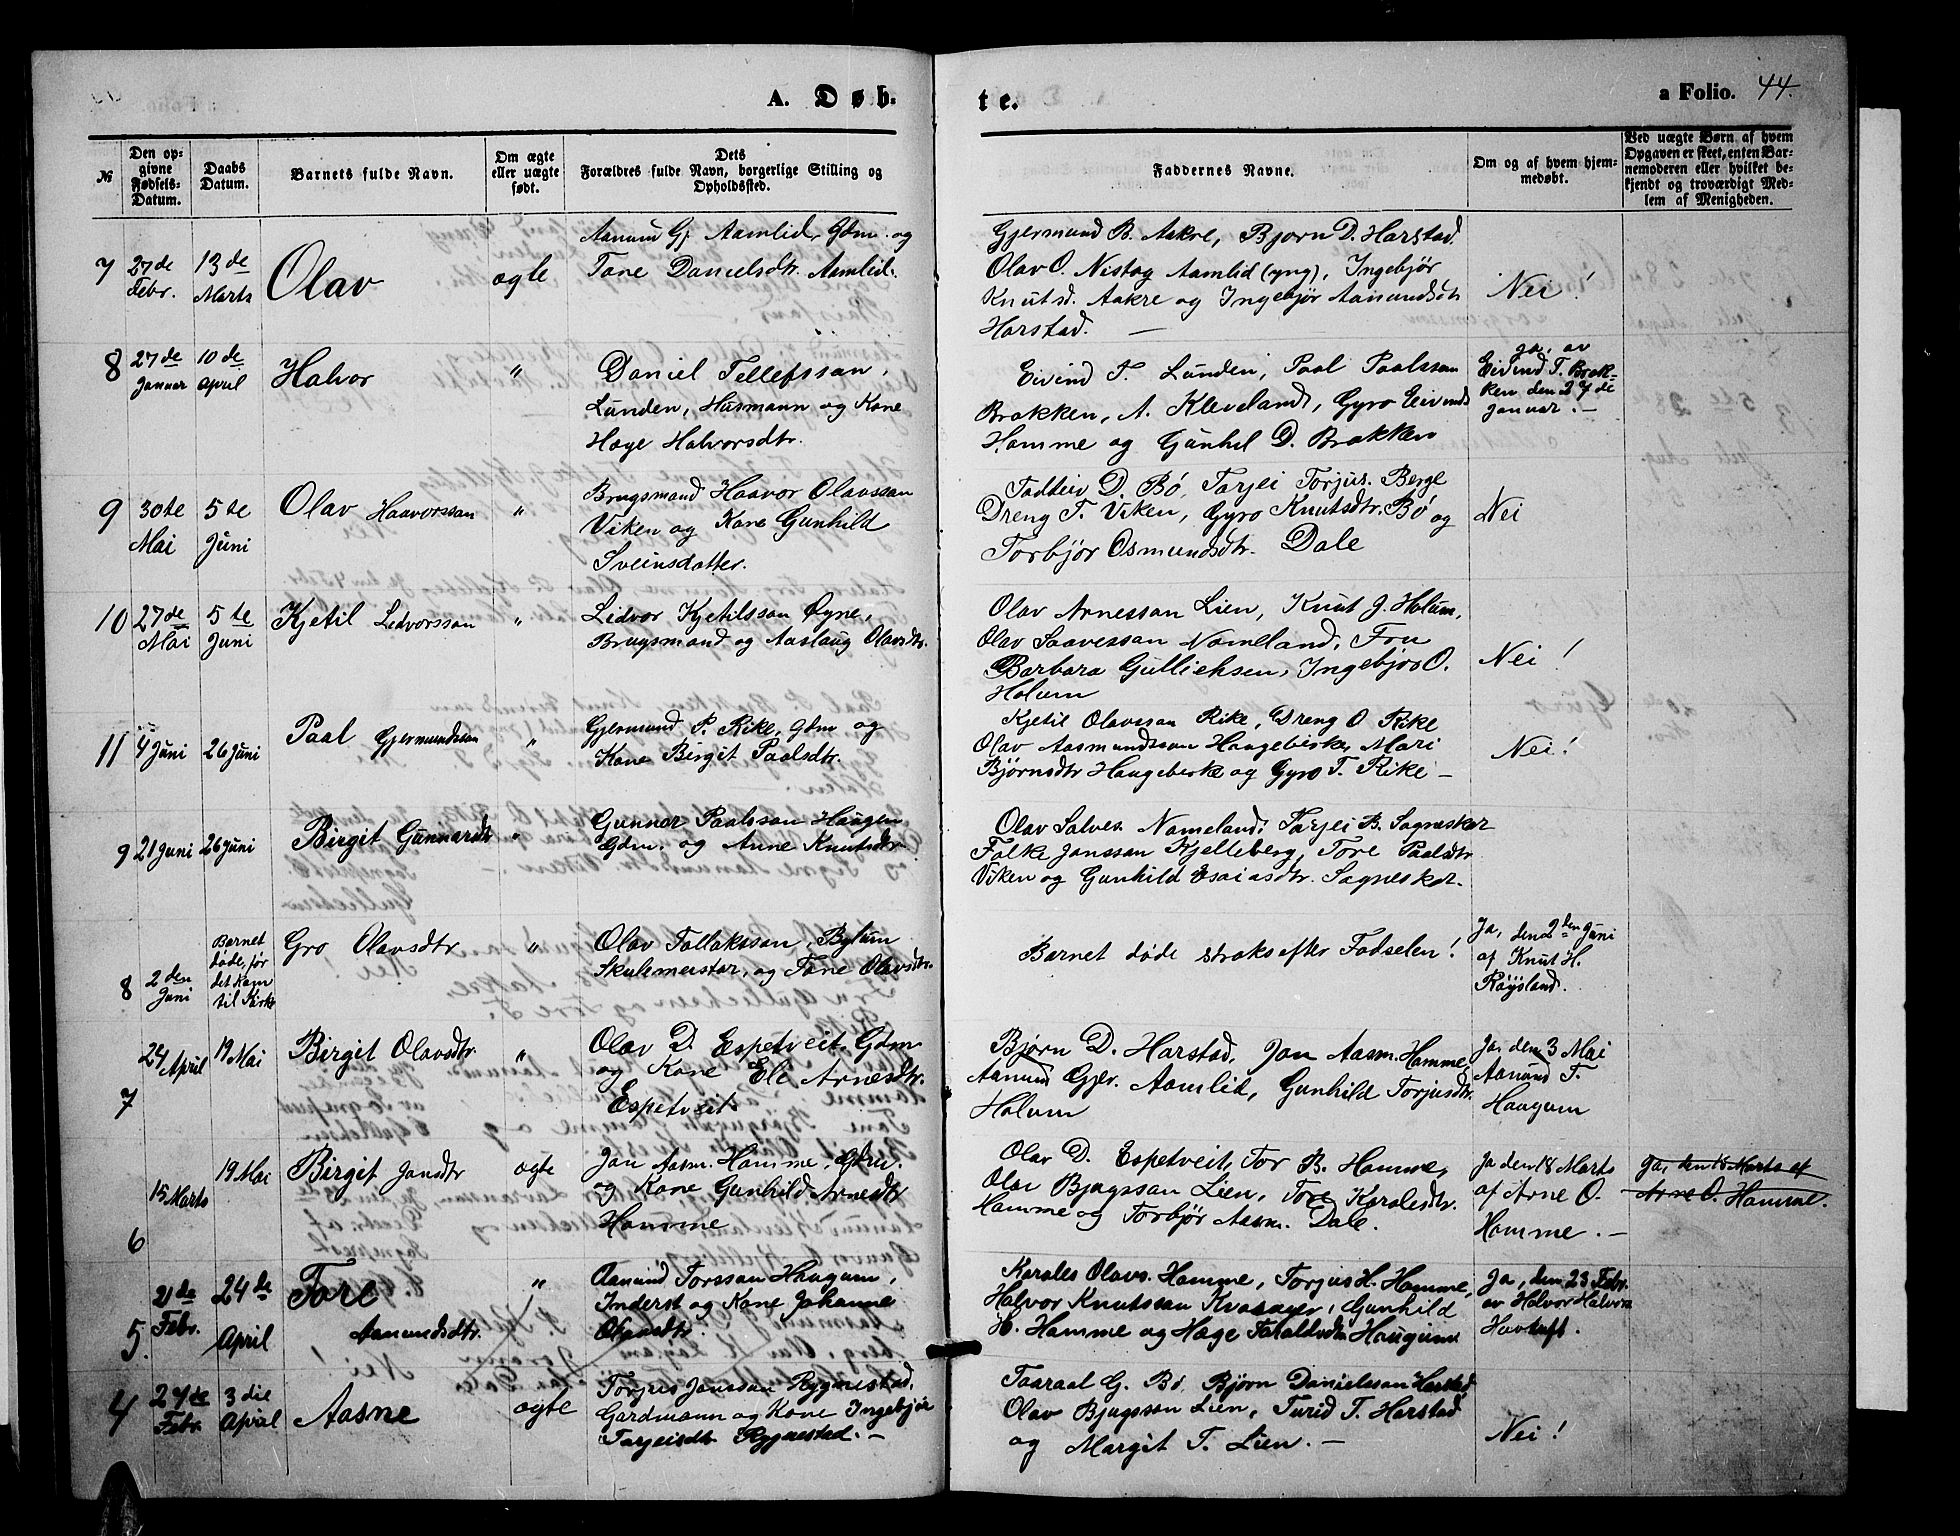 A. Døb-
te.
a Folio. 44.
№
Den op-
givne
Fødsels-
Datum.
Daabs
Datum.
Barnets fulde Navn.
Om ægte
eller uægte
født.
Dets
Forældres fulde Navn, borgerlige Stilling og
Opholdssted.
Faddernes Navne.
Om og af hvem hjem-
medøbt.
Ved uægte Børn af hvem
Opgaven er skeet, enten Bar-
nemoderen eller hvilket be-
kjendt og troværdigt Med-
lem af Menigheden.
7
27de
Febr.
13de
Marts
Olav
ogte
Aanund Gj Aamlid, Gdm. og
Tone Danielsdtr. Aamlid.
Gjermund B. Aakre, Bjorn D. Harstad
Olav O. Nistog Aamlid (yng), Ingebjør
Knutsd. Aakre og Ingebjør Aanundsdtr
Harstad. —
Nei!
8
27de
Januar
10de
April
Halvor
"
Daniel Tellefssan,
Lunden, Husmann og Kone
Hæge Halvorsdtr.
Eivind T. Lunden, Paal Paalsson
Brokken, A. Kleveland, Gyro Eivinds
Homme og Gunhil D. Brokken
ja, av
Eivind T. Brok-
ken den 27de
Januar. —
9
30te
Mai
5te
Juni
Olav Haavorssan
"
Brugsmand Haavor Olavssan
Viken og Kone Gunhild
Sveinsdatter.
Tadleiv D. Bø, Tarjei Torjus. Berge
Dreng T. Viken, Gyro Knutsdtr. Bø og
Torbjør Osmundsdtr. Dale
Nei
10
27de
Mai
5te
Juni
Kjetil Lidvorssan
"
Lidvor Kjetilssan Øyne,
Brugsmand og Aaslaug Olavsdtr.
Olav Arnessan Lien, Knut J. Holum,
Olav Saavessan Nomeland, Fru
Barbara Gullichsen, Ingebjor O.
Holum
Nei!
11
4 Juni
26 Juni
Paal Gjermundssan
"
Gjermund P. Rike, Gdm og
Kone Birgit Paalsdtr.
Kjetil Olavssan Rike, Dreng O Rike
Olav Aasmundssan Haugebirke, Mari
Bjørnsdtr Haugebirke og Gyro T. Rike —
Nei!
9
21 Juni
26 Juni
Birgit Gunnarsdtr
"
Gunnar Paalsson Haugen
Gdm. og Anne Knutsdtr
Olav Salves. Nomeland, Tarjei B. Sagneskar
Folke Janssan Kjelleberg, Tore Paalsdtr
Viken og Gunhild Esaiasdtr. Sagneskar.
8
2den
Juni
Barnet
døde, før
det kom
til Kirke
Gro Olavsdtr
"
Olav Tallakssan, Bylum
Skulemeistar, og Tone Olavsdtr.
Barnet døde straks efter Fødselen!
Ja, den 2den Juni
af Knut H.
Røysland.
7
24 April
19 Mai
Birgit Olavsdtr.
"
Olav D. Espetveit, Gdm
og Kone Eli Arnesdtr.
Espetveit
Bjørn D. Harstad, Jon Aasm. Homme,
Aanund Gjer. Aamlid, Gunhild Torjusdtr.
Holum
Ja, den 3 Mai
Aanund T.
Haugum
6
15 Marts
19 Mai
Birgit Jonsdtr
ogte
Jon Aasm. Homme, Gdm.
og Kone Gunhild Arnesdtr
Homme
Olav D. Espetveit, Tor B. Homme,
Olav Bjugssan Lien, Tore Karolesdtr.
Homme og Torbjør Aasm. Dale.
Ja den 18 Marts
af Arne O.
Homme. —
Ja, den 18 Marts af
Arne O. Homme.
5
21de
Febr.
24de
April
Tore
Aanundsdtr.
"
Aanund Torssan Haugum,
Inderst og Kone Johanne
Olavsdtr.
Karoles Olavs. Homme, Torjus H. Homme,
Halvor Knutssan Kvasager, Gunhild
H. Homme og Hæge Taraldsdtr Haugum
Ja, den 23 Febr.
av Halvor Halvors
Hovtuft.
4
27de
Febr.
3die
April
Aasne
ogte
Torjus Jonssan Rygnestad,
Gardmann og Kone Ingebjør
Tarjeisdtr Rygnestad. —
Taaraal G. Bø, Bjørn Danielssan Harstad
Olav Bjugssan Lien, Turid T. Harstad
og Margit T. Lien. —
Nei!